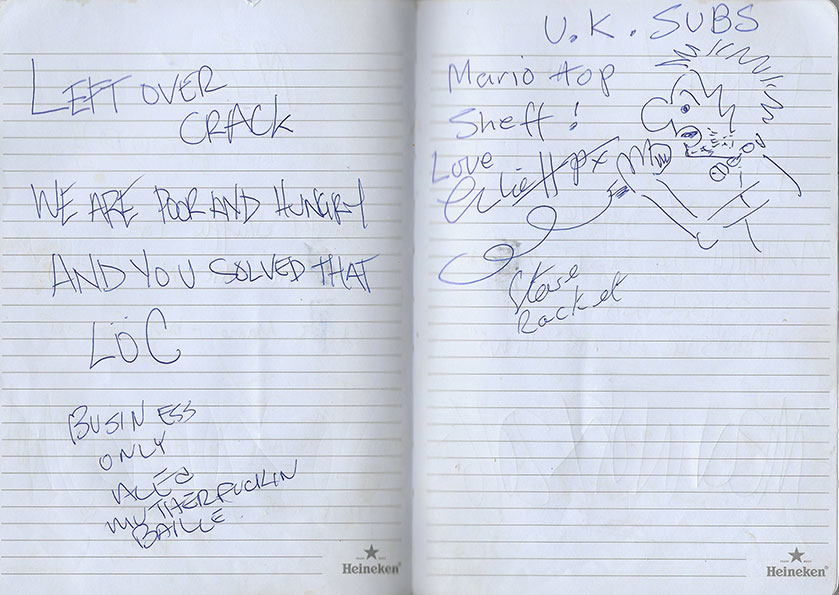 LEFT OVER
CRACK
WE ARE POOR AND HUNGRY
AND YOU SOLVED THAT
LÖC
BUSINESS
ONLY
ALEC
MUTHERFUCKIN
BAILLE.
Heineken
U.K. SUBS
Mario Hop
Sheff!
Love
Steve
Racket
Heineken